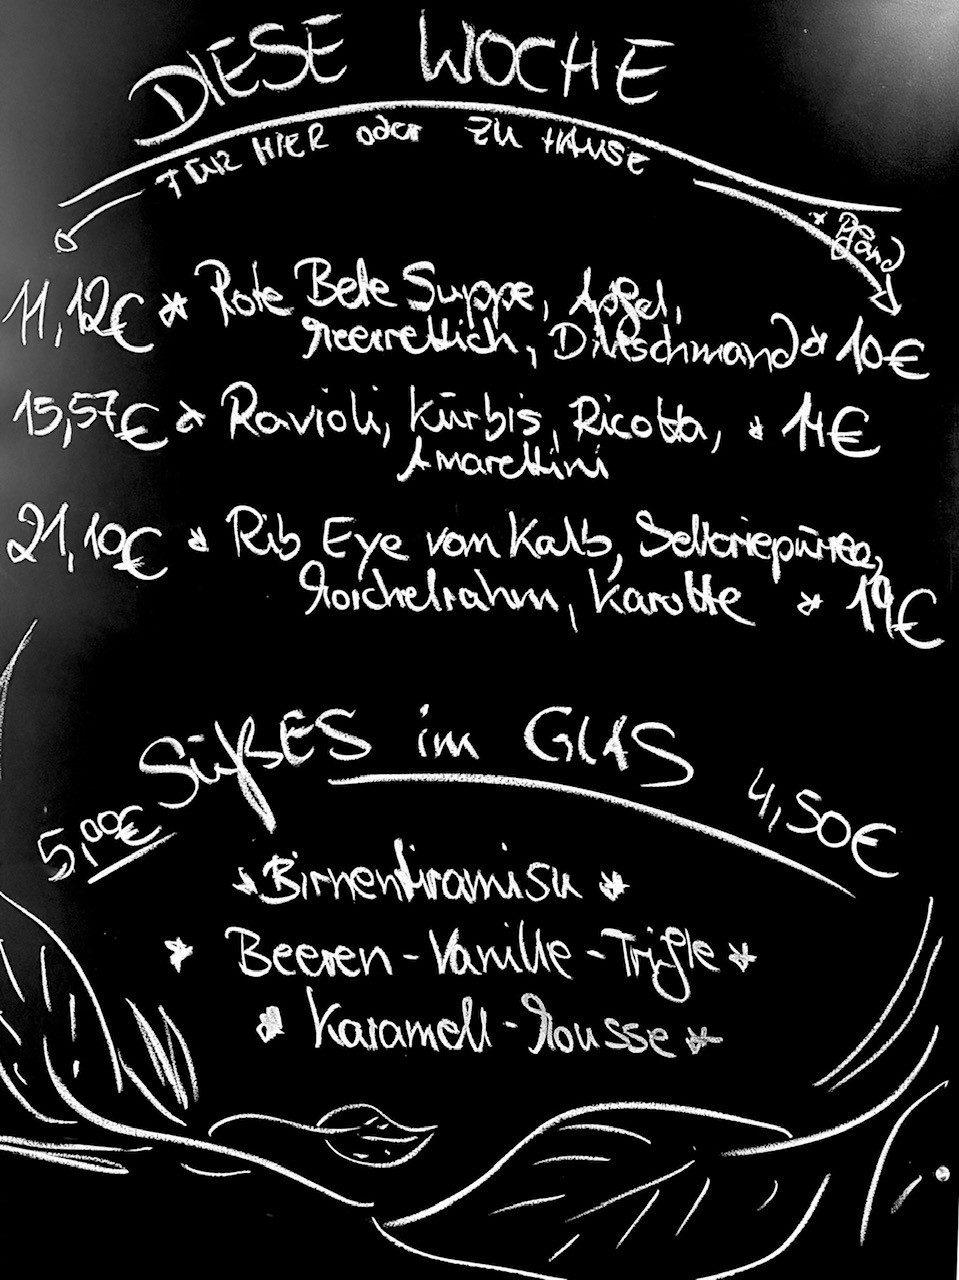 DIESE WOCHE
FÜR HIER oder ZU HAUSE
+ Pfand
11,12€ * Rote Bete Suppe, Apfel,
Meerrettich, Dillschmand * 10€
15,57€ * Ravioli, Kürbis, Ricotta, * 14€
Amarettini
21,10€ * Rib Eye vom Kalb, Selleriepüree,
Morchelrahm, Karotte * 19€
SÜßES im GLAS
5,00€ 4,50€
* Birnentiramisu *
* Beeren-Vanille-Trifle *
* Karamell-Mousse *